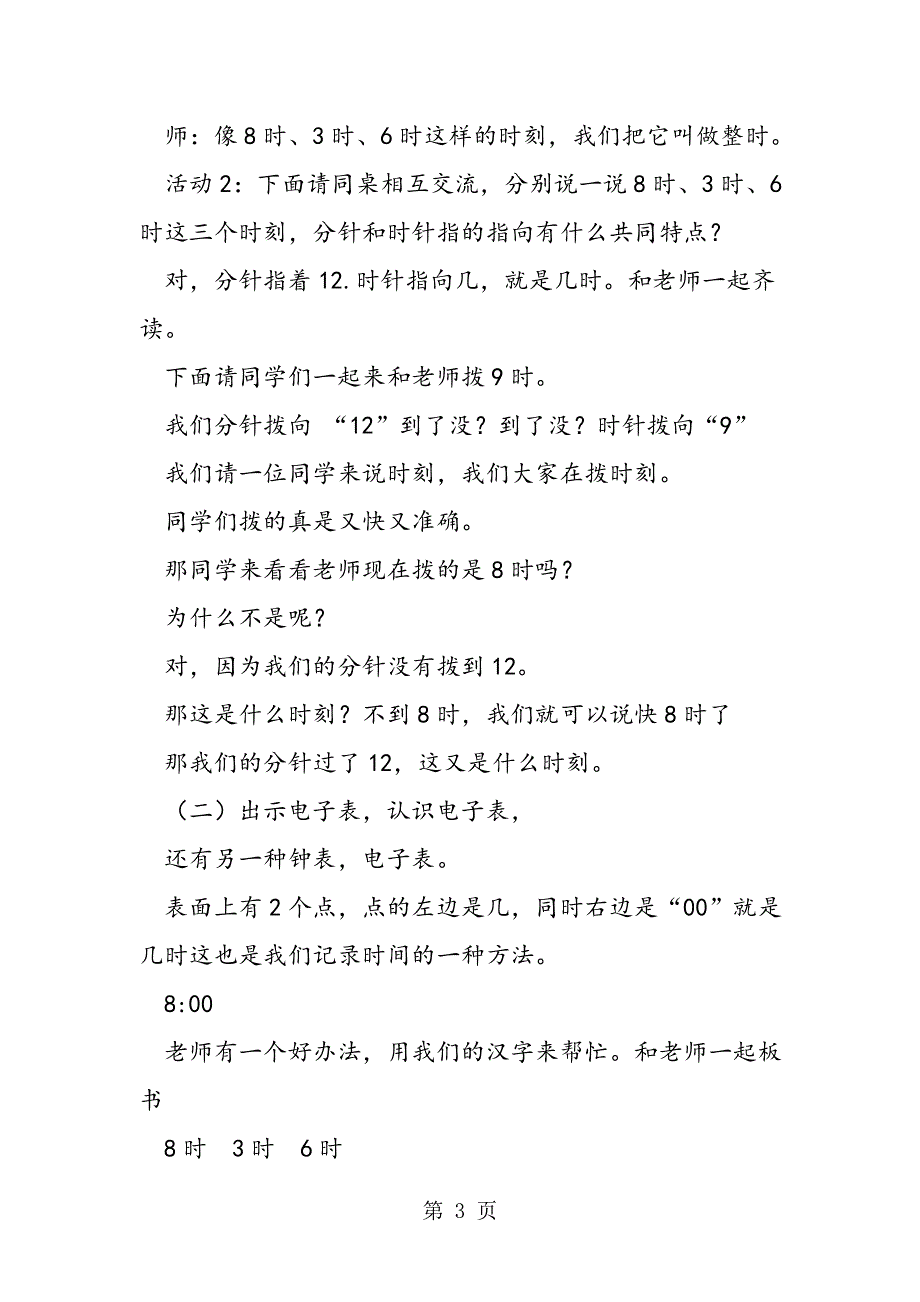 师：像8时、3时、6时这样的时刻，我们把它叫做整时。
活动2：下面请同桌相互交流，分别说一说8时、3时、6
时这三个时刻，分针和时针指的指向有什么共同特点？
对，分针指着12.时针指向几，就是几时。和老师一起齐
读。
下面请同学们一起来和老师拨9时。
我们分针拨向 “12”到了没？到了没？时针拨向“9”
我们请一位同学来说时刻，我们大家在拨时刻。
同学们拨的真是又快又准确。
那同学来看看老师现在拨的是8时吗？
为什么不是呢？
对，因为我们的分针没有拨到12。
那这是什么时刻？不到8时，我们就可以说快8时了
那我们的分针过了12，这又是什么时刻。
（二）出示电子表，认识电子表，
还有另一种钟表，电子表。
表面上有2个点，点的左边是几，同时右边是“00”就是
几时这也是我们记录时间的一种方法。
8:00
老师有一个好办法，用我们的汉字来帮忙。和老师一起板
书
8时 3时 6时
第 3 页